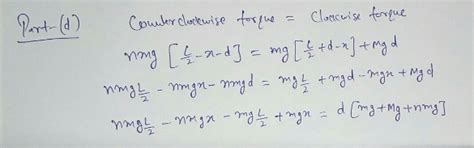 Part-(d) Counterclockwise torque = Clockwise torque
nmg [L/2 - x - d] = mg [L/2 + d - x] + Mgd
nmg L/2 - nmgx - nmgd = mg L/2 + mgd - mgx + Mgd
nmg L/2 - nmgx - mg L/2 + mgx = d [mg + Mg + nmg]